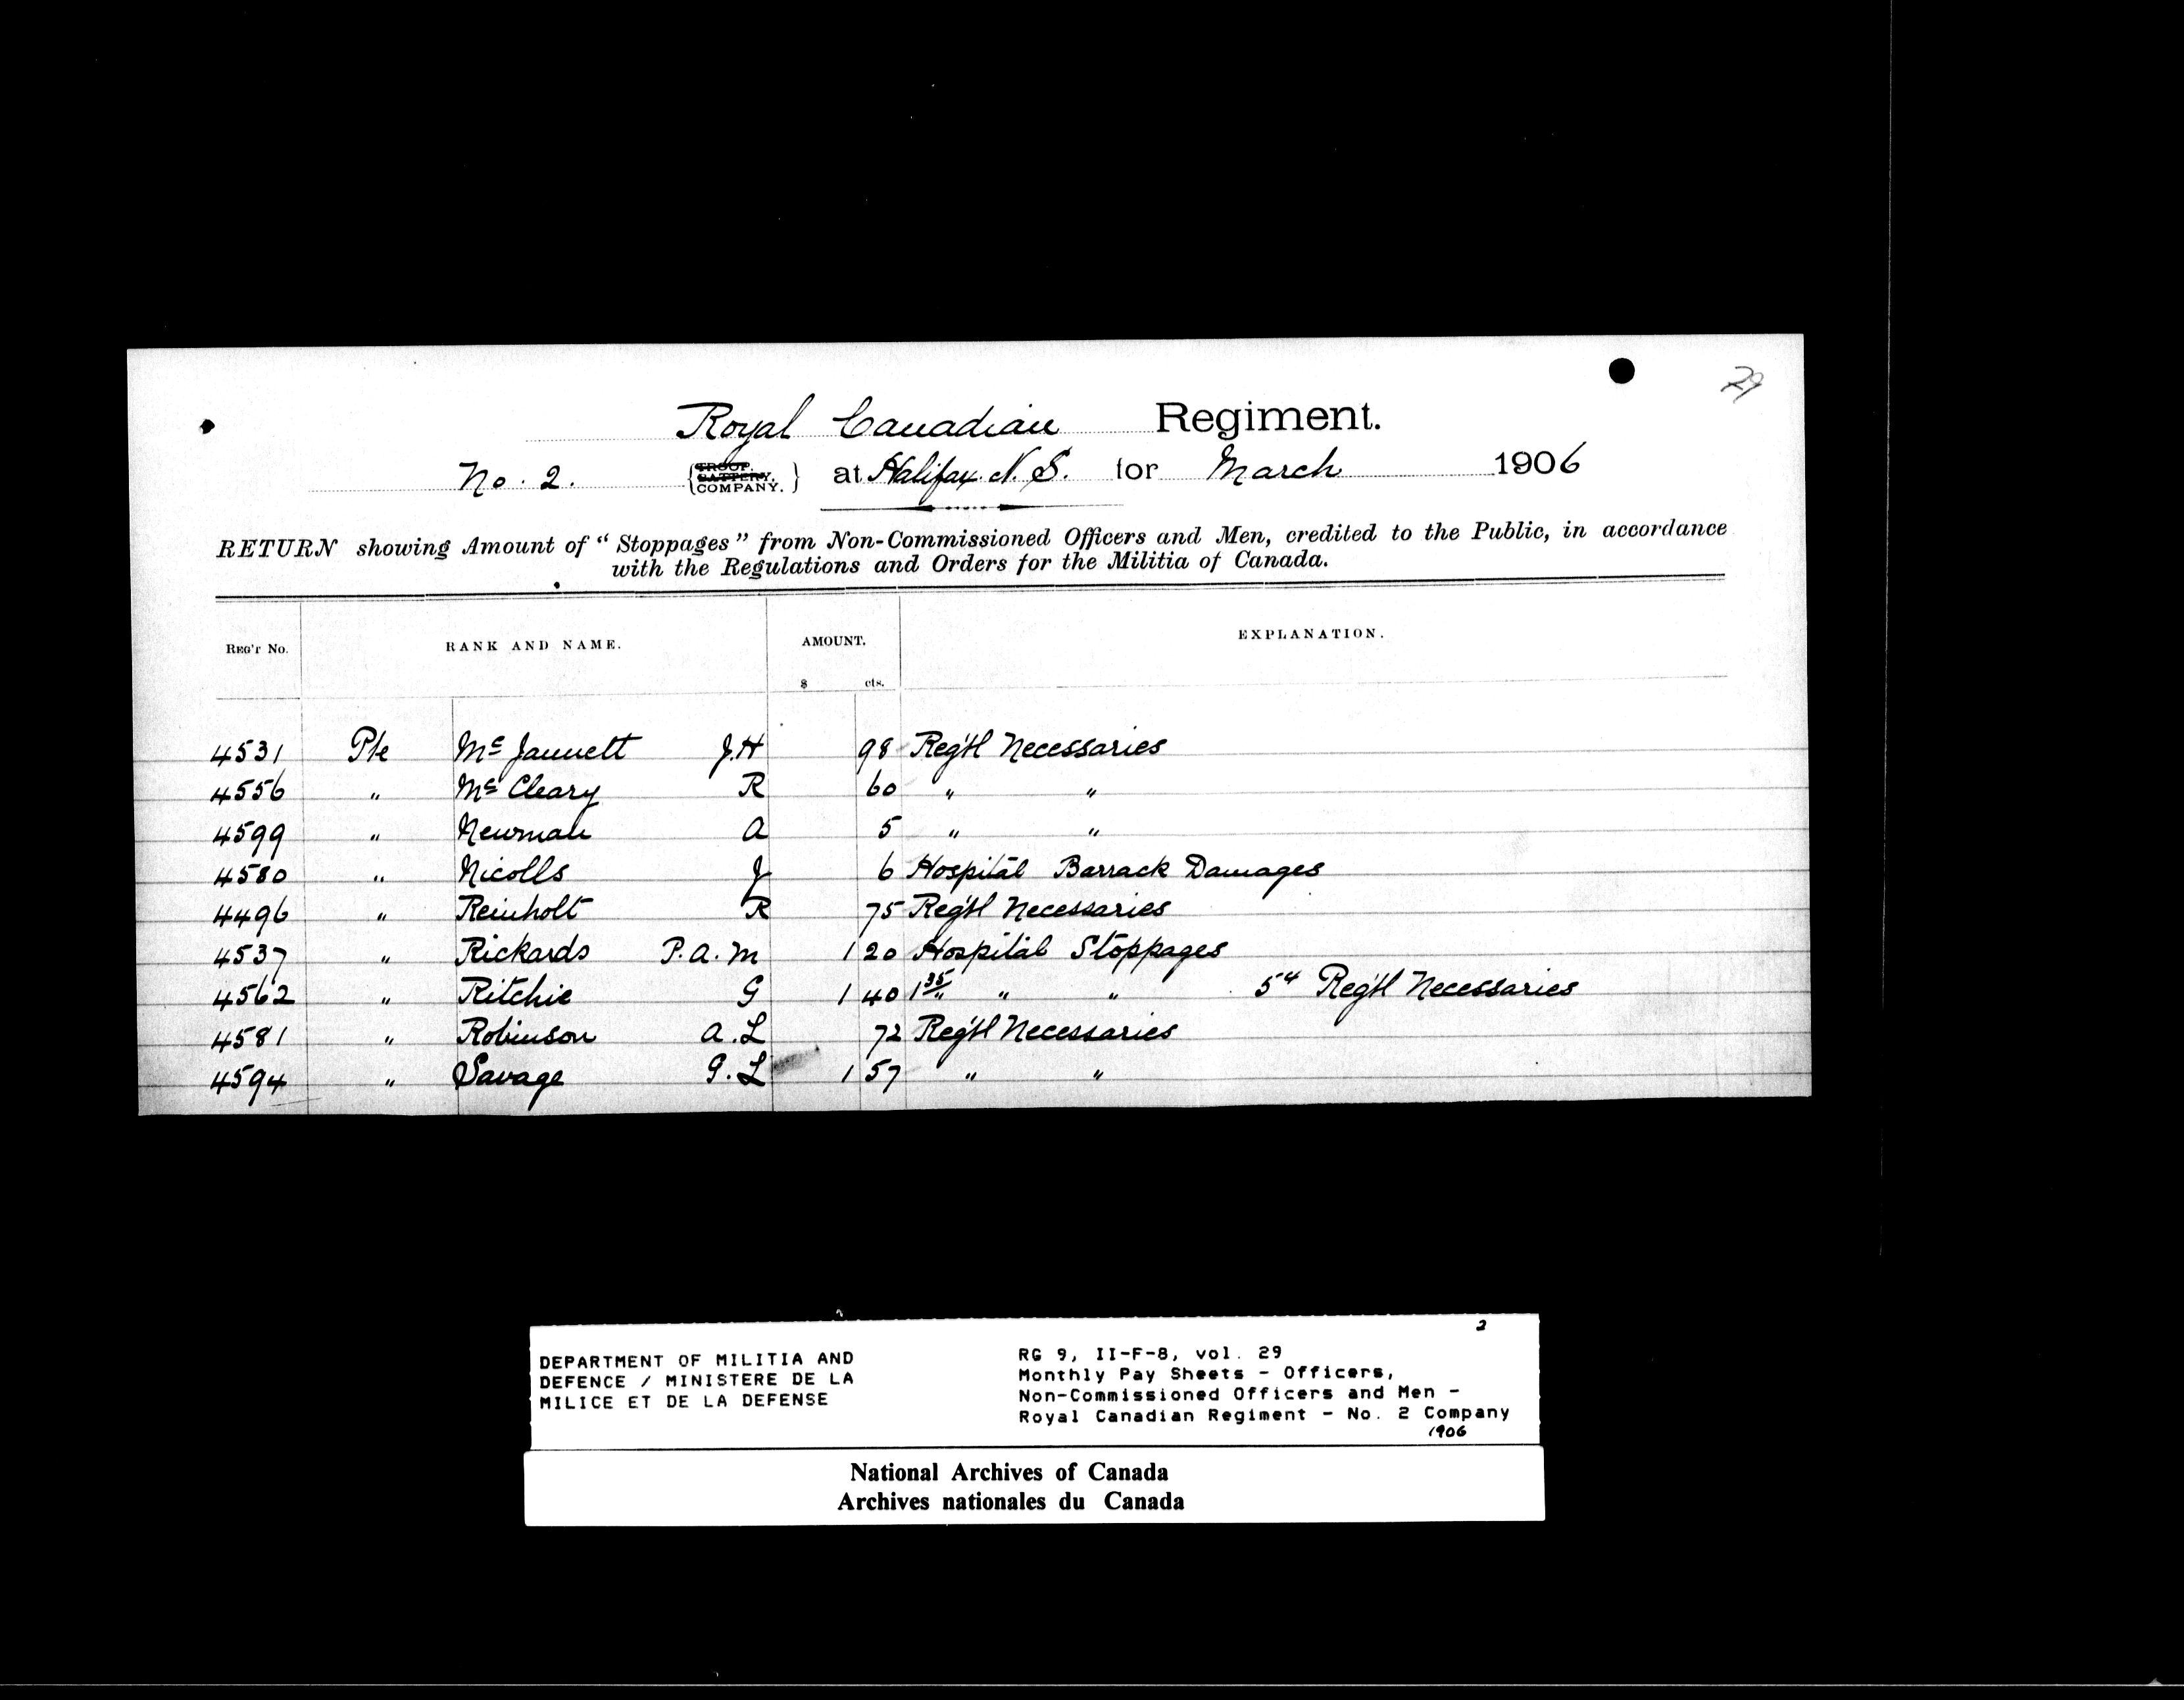 29
Royal Canadian Regiment.
No. 2. {TROOP. BATTERY. COMPANY.} at Halifax N.S. for March 1906
RETURN showing Amount of "Stoppages" from Non-Commissioned Officers and Men, credited to the Public, in accordance
with the Regulations and Orders for the Militia of Canada.
REG'T No. RANK AND NAME. AMOUNT. EXPLANATION.
$ cts.
4531 Pte McJannett J.H 98 Reg'tl Necessaries
4556 " McCleary R 60 " "
4599 " Newman A 5 " "
4580 " Nicolls J 6 Hospital Barrack Damages
4496 " Reinholt R 75 Reg'tl Necessaries
4537 " Rickards P.A.M 1 20 Hospital Stoppages
4562 " Ritchie G 1 40 1 35 " " 5 Reg'tl Necessaries
4581 " Robinson A.L 72 Reg'tl Necessaries
4594 " Savage G.L 1 57 " "
2
DEPARTMENT OF MILITIA AND
DEFENCE / MINISTERE DE LA
MILICE ET DE LA DEFENSE
RG 9, II-F-8, vol. 29
Monthly Pay Sheets - Officers,
Non-Commissioned Officers and Men -
Royal Canadian Regiment - No. 2 Company
1906
National Archives of Canada
Archives nationales du Canada